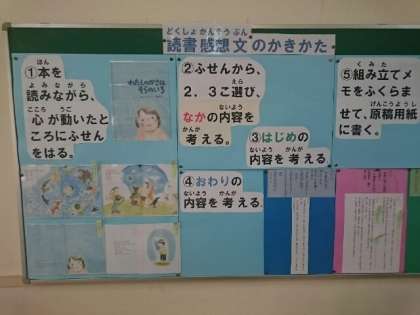 どくしょかんそうぶん
読書感想文のかきかた
ほん
①本を
よみながら、
読みながら、
こころ うご
心が動いたと
ころにふせん
をはる。
わたしのかさは
そらのいろ
②ふせんから、
えら
2．3こ選び、
ないよう
なかの内容を
かんが
考える。
③はじめの
ないよう かんが
内容を考える
④おわりの
ないよう かんが
内容を考える。
くみた
⑤組み立てメ
モをふくらま
げんこうようし
せて、原稿用紙
に書く。